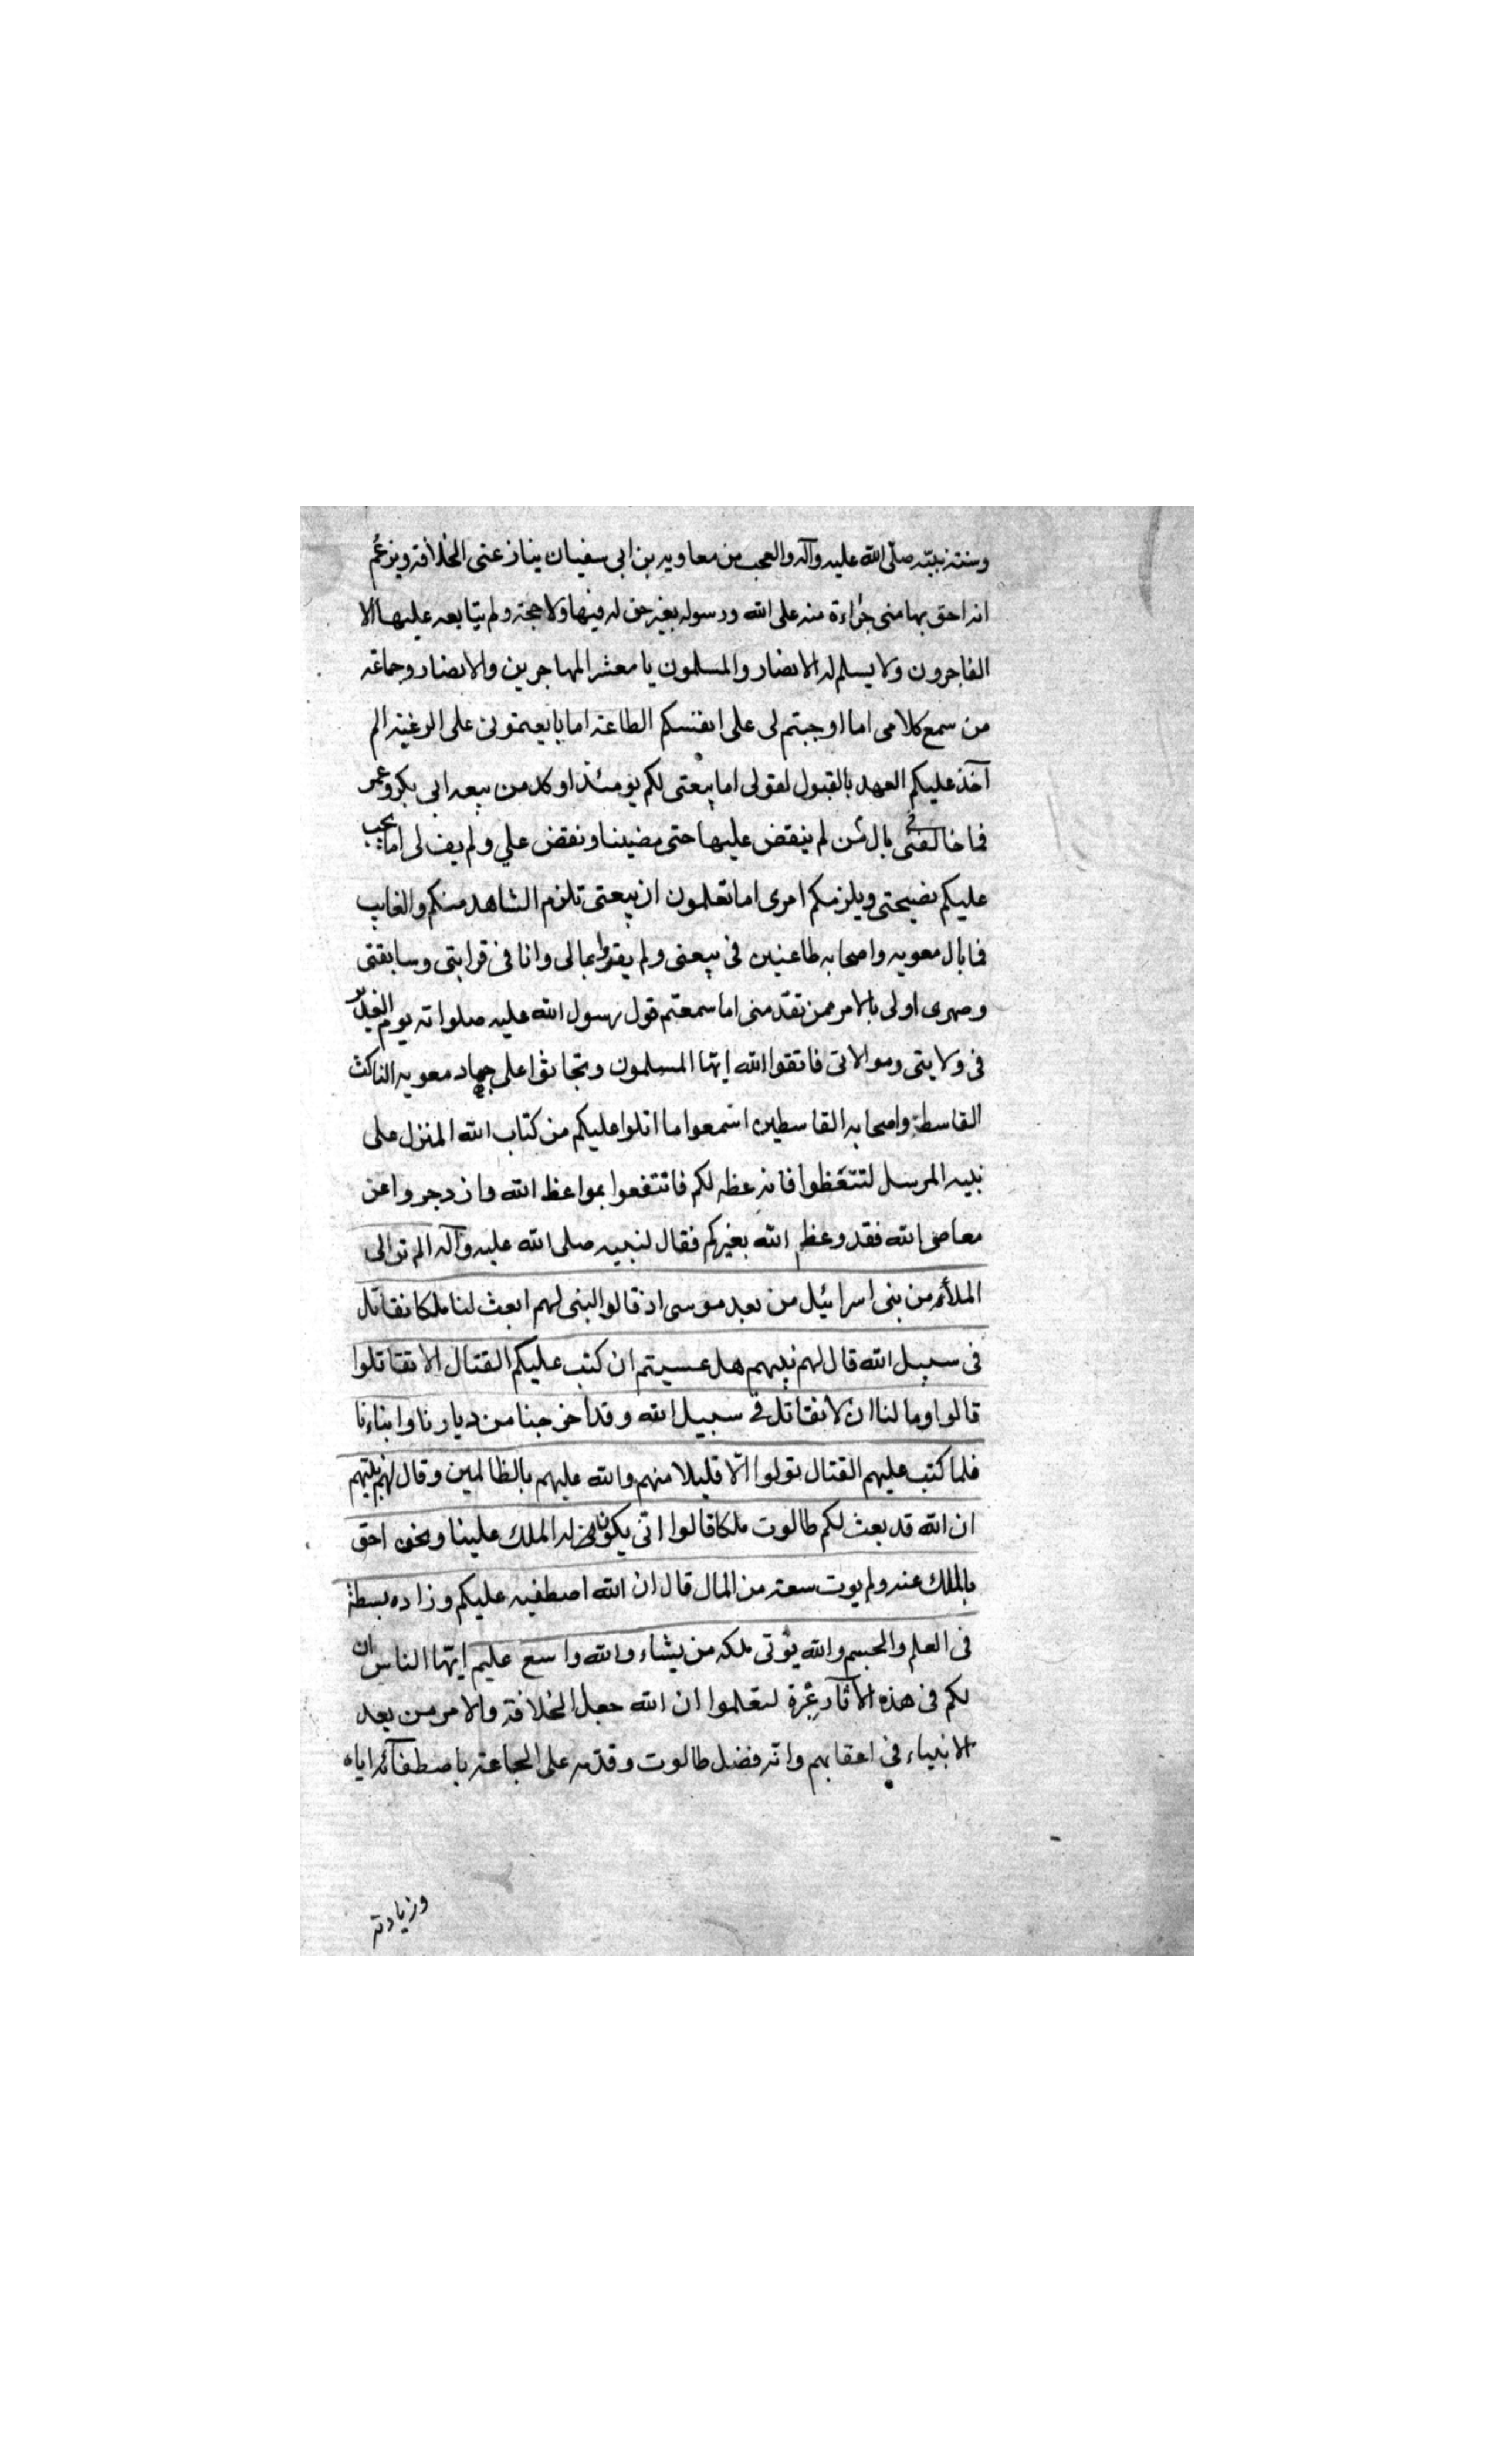 وسنته نبيّه صلّى الله عليه وآله والعجب من معاويه بن ابى سفيان ينازعنى الخلافة ويزعُم
انه احق بها منى جُراءة منه على الله ورسوله بغير حق له فيها ولا حجة ولم يتابعه عليها الا
الفاجرون ولا يسلم له الانصار والمسلمون يا معشر المهاجرين والانصار وجماعة
من سمع كلامى اما اوجبتم لى على انفسكم الطاعة اما بايعتمونى على الرغبة الم
آخذ عليكم العهد بالقبول لقولى اما بيعتى لكم يومئذ اوكد من بيعه ابى بكر وعمر
فما خالفنى بال مَن لم ينقض عليها حتى مضينا ونقض علي ولم يف لى اما يجب
عليكم نصيحتى ويلزمكم امرى اما تعلمون ان بيعتى تلزم الشاهد منكم والغايب
فما بال معويه واصحابه طاعنين فى بيعتى ولم يقوا بمالى وانا فى قرابتى وسابقتى
وصهرى اولى بالامر ممن تقدّمنى اما سمعتم قول رسول الله عليه صلواته يوم الغدير
فى ولايتى وموالاتى فاتقوا الله ايّها المسلمون وتحاثوا على جهاد معويه الناكث
القاسط واصحابه القاسطين اسمعوا ما اتلوا عليكم من كتاب الله المنزل على
نبيه المرسل لتتعّظوا فانه عظه لكم فانتفعوا بمواعظ الله وازدجروا عن
معاصى الله فقد وعظم الله بغيركم فقال لنبيه صلى الله عليه وآله الم تر الى
الملأ من بنى اسرائيل من بعد موسى اذ قالوا لنبى لهم ابعث لنا ملكا نقاتل
فى سبيل الله قال لهم نبيهم هل عسيتم ان كتب عليكم القتال الا تقاتلوا
قالوا وما لنا ان لا نقاتل فى سبيل الله وقد اخرجنا من ديارنا وابناءنا
فلما كتب عليهم القتال تولوا الّا قليلا منهم والله عليهم بالظالمين وقال لهم نبيّهم
ان الله قد بعث لكم طالوت ملكا قالوا انّى يكون له الملك علينا ونحن احق
بالملك عنه ولم يوت سعة من المال قال ان الله اصطفيه عليكم وزاده بسطة
فى العلم والجسم والله يؤتى ملكه من يشاء والله واسع عليم ايّها الناس ان
لكم فى هذه الآثار عِبْرة لتعلموا ان الله جعل الخلافة والامر من بعد
الانبياء في اعقابهم وانه فضل طالوت وقدّمه على الجماعة باصطفآئه اياه
وزيادته